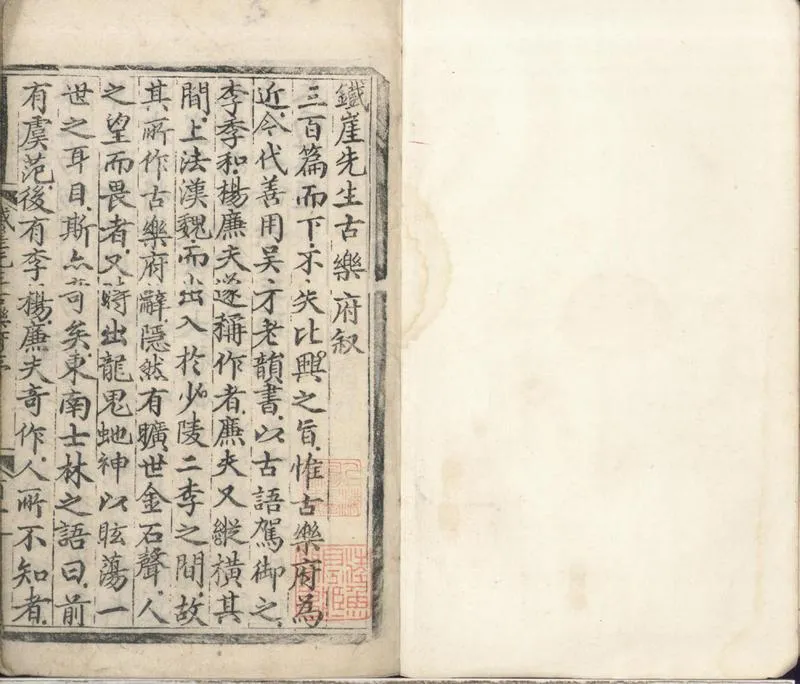 鐵崖先生古樂府叙
三百篇而下.不失比興之旨.惟古樂府為
近.今代善用吴才老韻書.以古語駕御之.
李季和楊廉夫遂稱作者.廉夫又縱橫其
間.上法漢魏.而出入於少陵二李之間.故
其所作古樂府辭.隠然有曠世金石聲.人
之望而畏者.又時出龍鬼虵神以眩蕩一
世之耳目.斯亦奇矣.東南士林之語曰.前
有虞范.後有李楊.廉夫奇作.人所不知者.